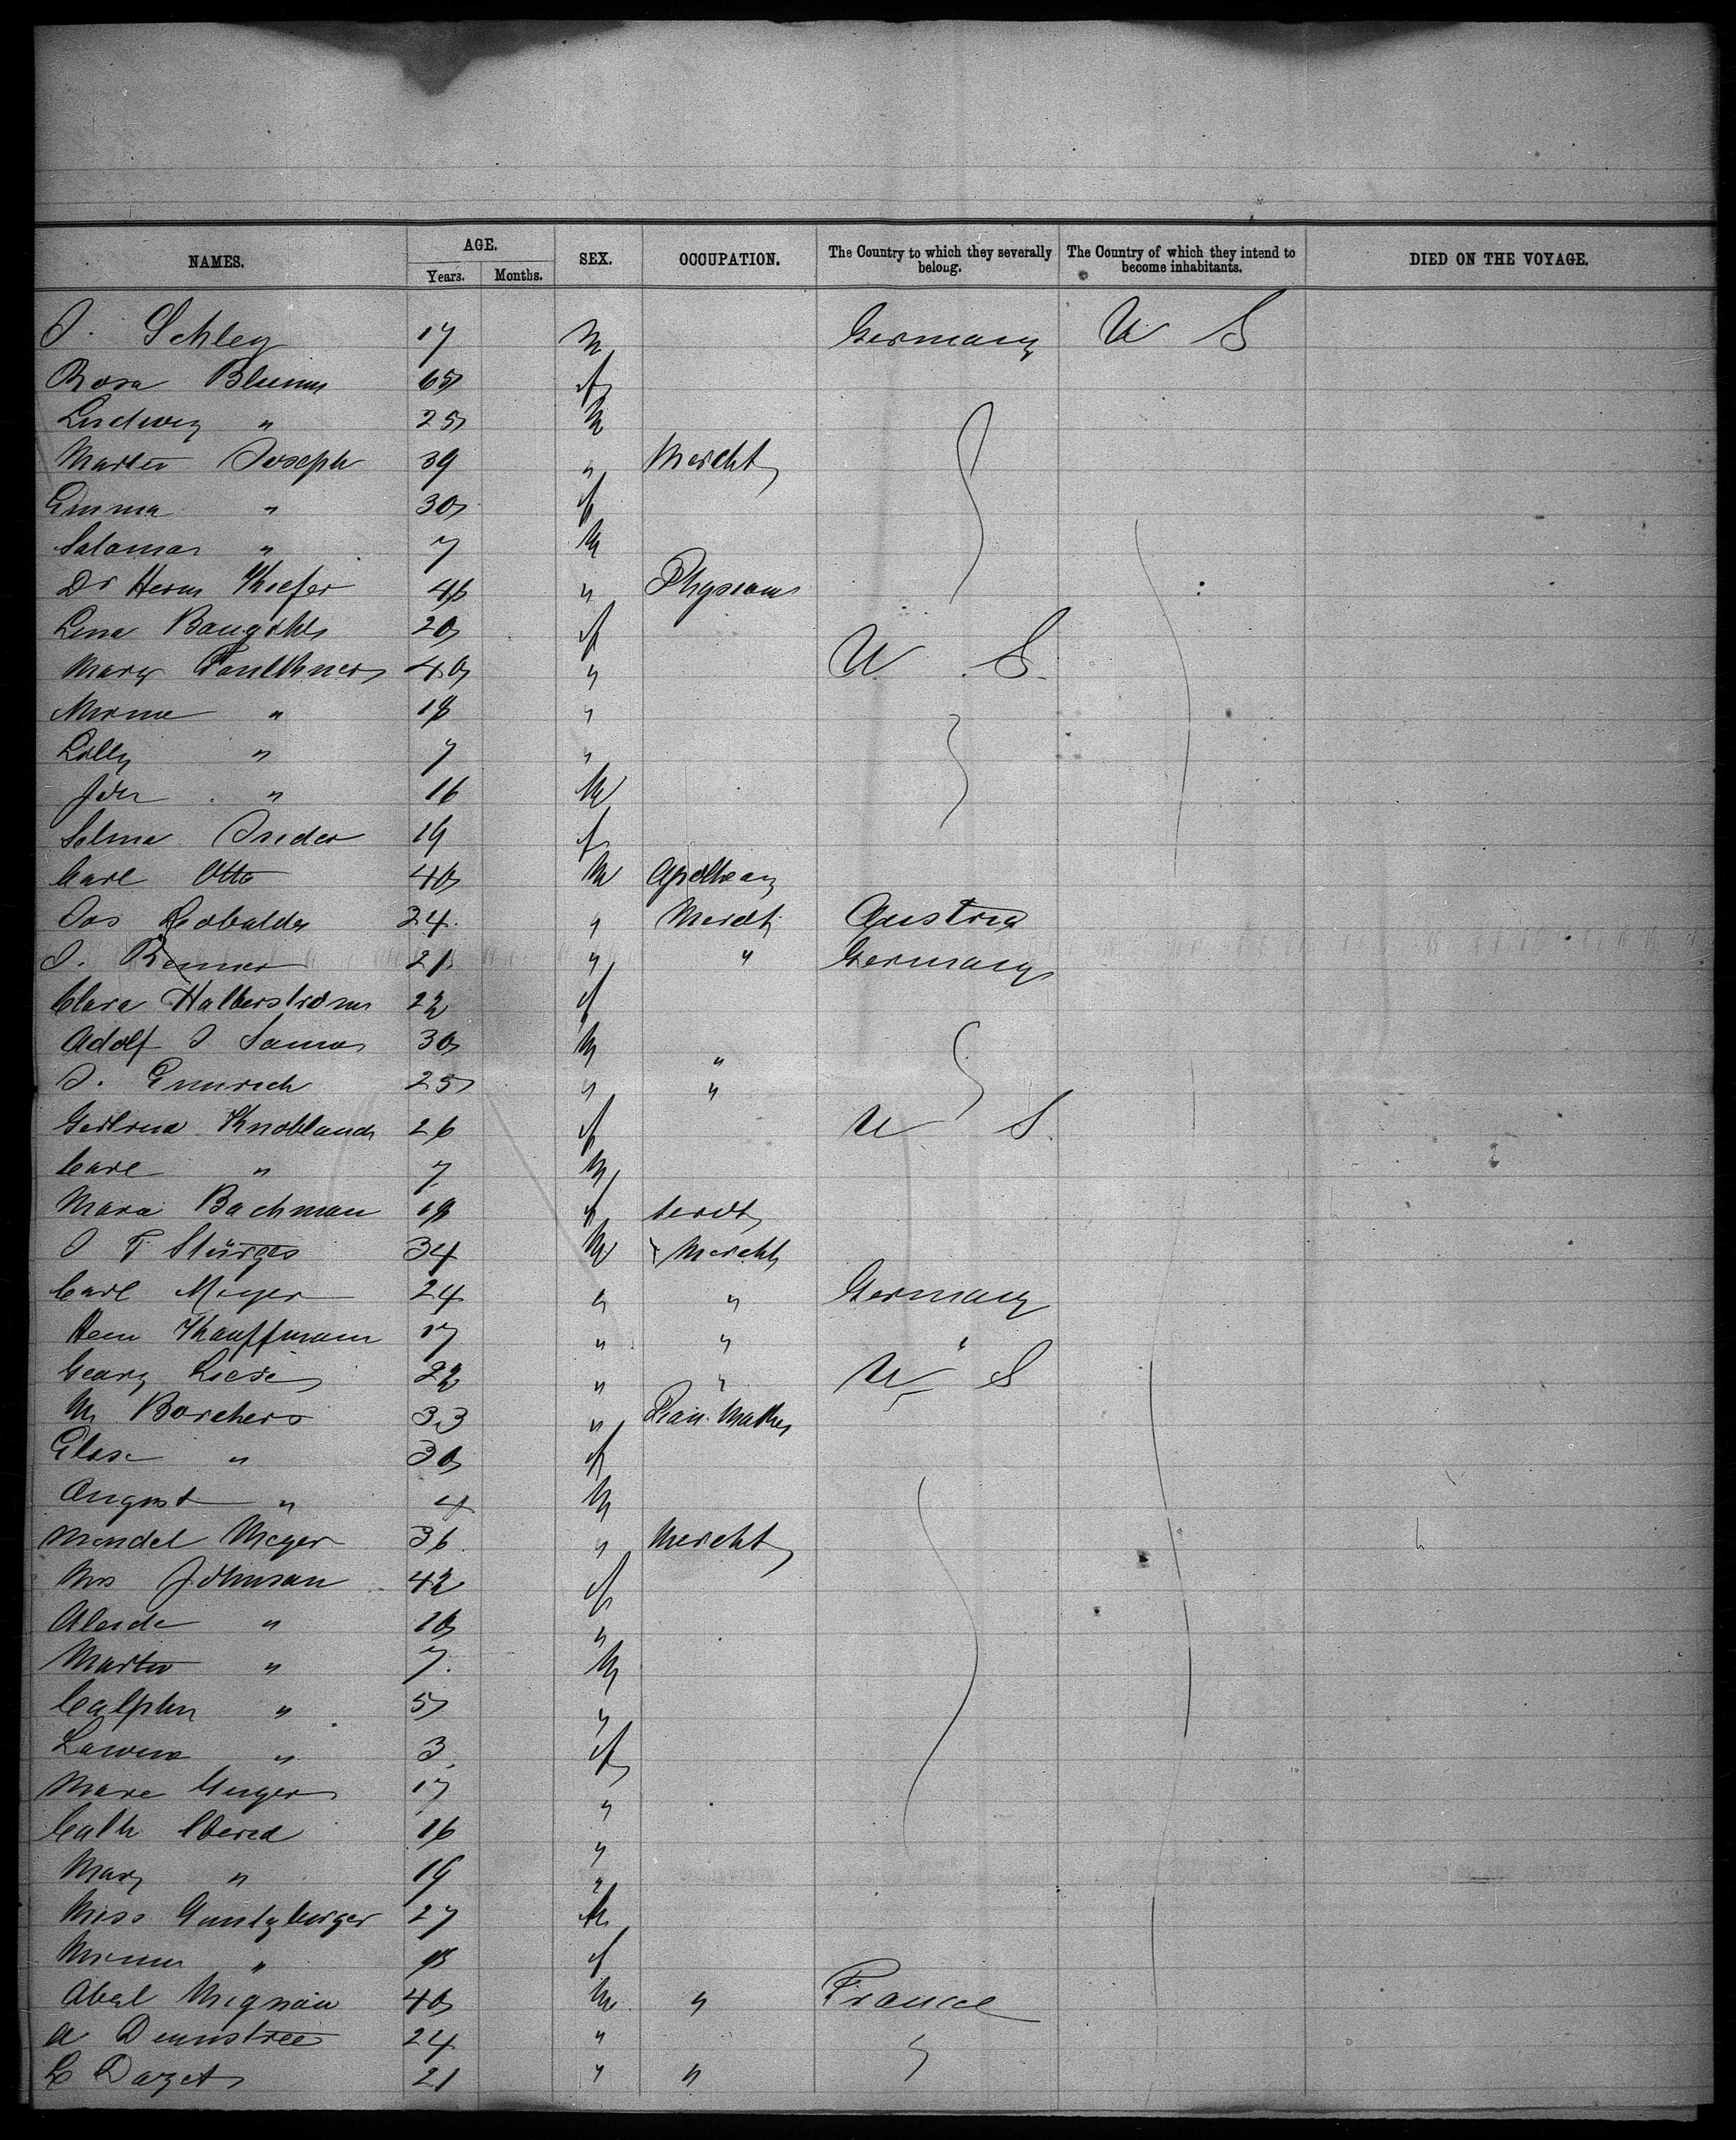 NAMES. AGE. Years. Months. SEX. OCCUPATION. The Country to which they severally belong. The Country of which they intend to become inhabitants. DIED ON THE VOYAGE.
J. Schley 17 M Germany U S
Rosa Blumm 65 f
Ludwig " 25 M
Martin Joseph 39 " Mercht
Emma " 30 f
Salamon " 7 M
Dr Herm Kiefer 46 " Physician
Lena 20 f
Mary Faulkner 40 " U S.
Minnie " 18 "
Lilly " 7 "
Joh " 16 M
Selma 19 f
Carl Otto 40 M Apothecary
Jos 24 " Mercht Austria
J. Renner 21 " " Germany
Clara Halberstrom 22 f
Adolf J 30 M "
J. Emmrich 25 " "
Gertrud Knoblauch 26 f U S.
Carl " 7 M
Maria Bachman 18 f
J F Stürges 34 M Mercht
Carl Meyer 24 " " Germany
Hein Kauffmann 17 " " "
Georg 22 " " U S
M Borchers 33 " Pian. Maker
Elise " 30 f
August " 4 M
Mendel Meyer 36 " Mercht
Mrs Johnson 42 f
" 10 "
Martin " 7 M
" 5 "
" 3 f
Marie 17 "
Cath 16 "
Mary " 19 "
Miss Guntzburger 27 M
Minna " 18 f
Abel Mignain 40 M " France
A 24 "
L Dazet 21 " "